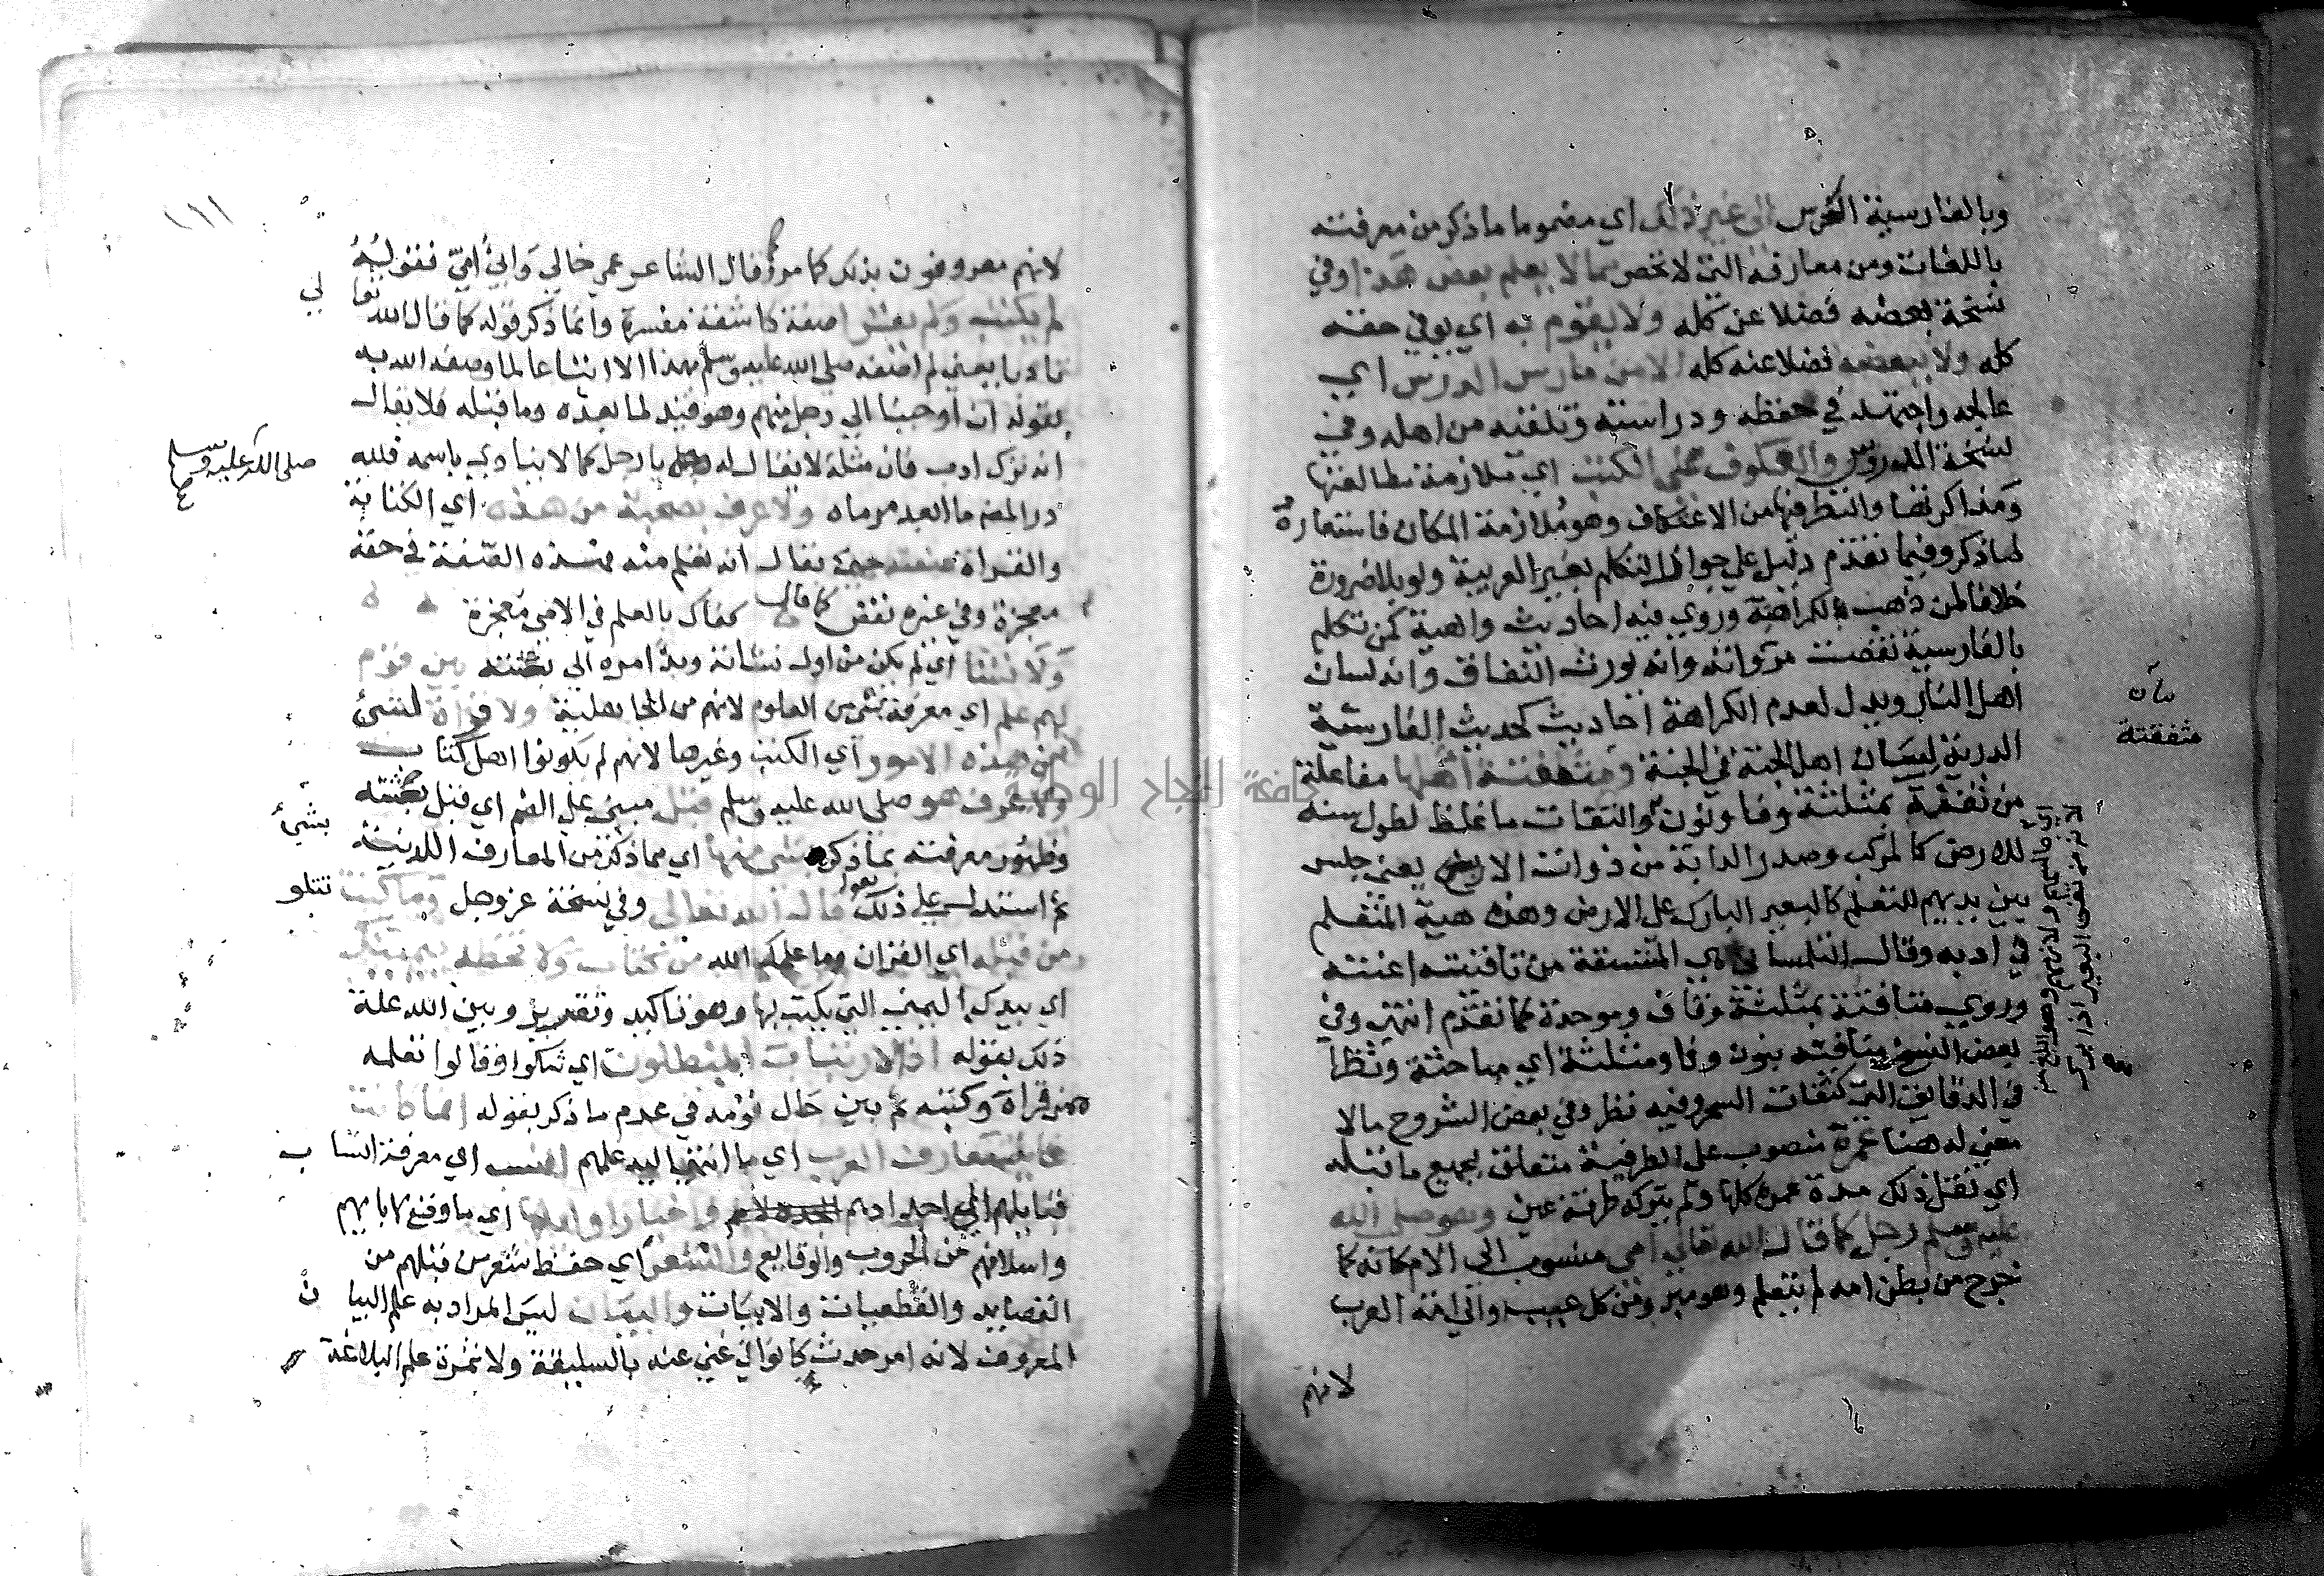 وبالفارسية الفرس الى غير ذلك اي مضموما ما ذكر من معرفته
باللغات ومن معارفه التي لا تحصر مما لا يعلم بعض هذا وفي
نسخة بعضه فضلا عن كله ولا يقوم به اي يوفي حقه
كله ولا ببعضه فضلا عنه كله الا من مارس الدرس اي
عالجه واجتهد في حفظه ودراسته وتلقنه من اهله وفي
نسخة الدروس والعكوف على الكتب اي ملازمة مطالعتها
ومذاكرتها والنظر فيها من الاعتكاف وهو ملازمة المكان فاستعاره
لما ذكر وفيما تقدم دليل على جواز التكلم بغير العربية ولو بلا ضرورة
خلافا لمن ذهب لكراهته وروي فيه احاديث واهية كمن تكلم
بالفارسية نقصت مروأته وانه يورث النفاق وانه لسان
اهل النار ويدل لعدم الكراهة احاديث كحديث الفارسية
الدرية لسان اهل الجنة في الجنة ومثافنة اهلها مفاعلة
من ثفنة بمثلثة وفا ونون والثفنات ما غلظ لطول مسه
للارض كالركب وصدر الدابة من ذوات الاربع يعني جلس
بين يديهم للتعلم كالبعير البارك على الارض وهذه هيئة المتعلم
في ادبه وقال التلمساني هي المشتقة من ثافنته اعنته
وروي مثاقبة بمثلثة وقاف وموحدة كما تقدم انتهى وفي
بعض النسخ منافثه بنون وفا ومثلثة اي مباحثة ونظرا
في الدقايق التي كنفثات السحر وفيه نظر وفي بعض الشروح ما لا
معنى له هنا عمره منصوب على الظرفية متعلق بجميع ما قبله
اي نقل ذلك مدة عمره كلها ولم يتركه طرفة عين وهو صلى الله
عليه وسلم رجل كما قال الله تعالى امي منسوب الى الام كانه كما
خرج من بطن امه لم يتعلم وهو مبرؤ من كل عيب والى امة العرب
لانهم
مثفنة
١١١
لانهم معروفون بذلك كما مر وقال الشاعر عمي خالي وابي امي فقوله
لم يكتب ولم يقرا صفة كاشفة مفسرة وانما ذكر قوله كما قال الله تعا لي
تادبا يعني لم اصفه صلى الله عليه وسلم بهذا الا اتباعا لما وصفه الله به
بقوله ان اوحينا الى رجل منهم وهو قيد لما بعده وما قبله فلا يقال
انه ترك ادب فان مثله لا يقال له رجل يا رجل كما لا ينادي باسمه فلله
صلى الله عليه وسلم
در المص ما ابعد مرماه ولا عرف بصحبة من هذه اي الكتابة
والقراة صفته حتى يقال انه تعلم منه وهذه الصفة في حقه
معجزة وفي غيره نقص كما قال كفاك بالعلم في الامي معجزة
ولا نشا اي لم يكن من اول نشاته وبدأ امره الى بعثته بين قوم
لهم علم اي معرفة بشي من العلوم لانهم من الجاهلية ولا قراة لشئ
من هذه الامور اي الكتب وغيرها لانهم لم يكونوا اهل كتاب
ولا عرف هو صلى الله عليه وسلم قبل مبني على الضم اي قبل بعثته
وظهور معرفته بما ذكر بشي منها اي مما ذكر من المعارف اللدنية
بشئ
ثم استدل على ذلك بقوله قال الله تعالى وفي نسخة عز وجل وما كنت تتلو
من قبله اي القران وما علمكه الله من كتاب ولا تخطه بيمينك
اي بيدك اليمين التي يكتب بها وهو تاكيد وتقرير وبين الله علة
ذلك بقوله اذا لارتاب المبطلون اي شكوا وقالوا تعلمه
من قراة وكتبه ثم بين حال قومه في عدم ما ذكر بقوله انما كانت
غاية معارف العرب اي ما انتهى اليه علمهم النسب اي معرفة انساب
قبايلهم الى اجدادهم واخبار اوايلها اي ما وقع لابايهم
واسلافهم من الحروب والوقايع والشعر اي حفظ شعر من قبلهم من
القصايد والقطعيات والابيات والبيان ليس المراد به علم البيان
المعروف لانه امر حدث كانوا في غنى عنه بالسليقة ولا ثمرة علم البلاغة
جامعة النجاح الوطنية